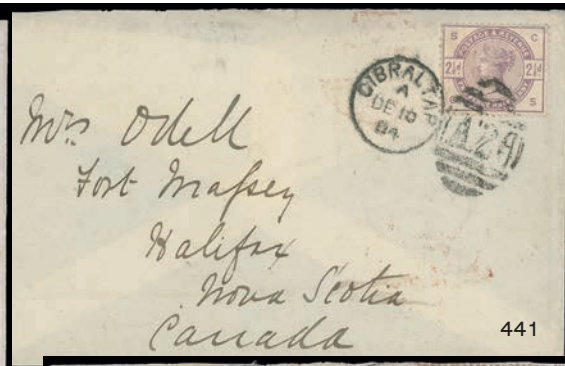 POSTAGE & REVENUE
S C
2½d 2½d
S
GIBRALTAR
A
DE 10
84
A26
Mrs Odell
Fort Massey
Halifax
Nova Scotia
Canada
441